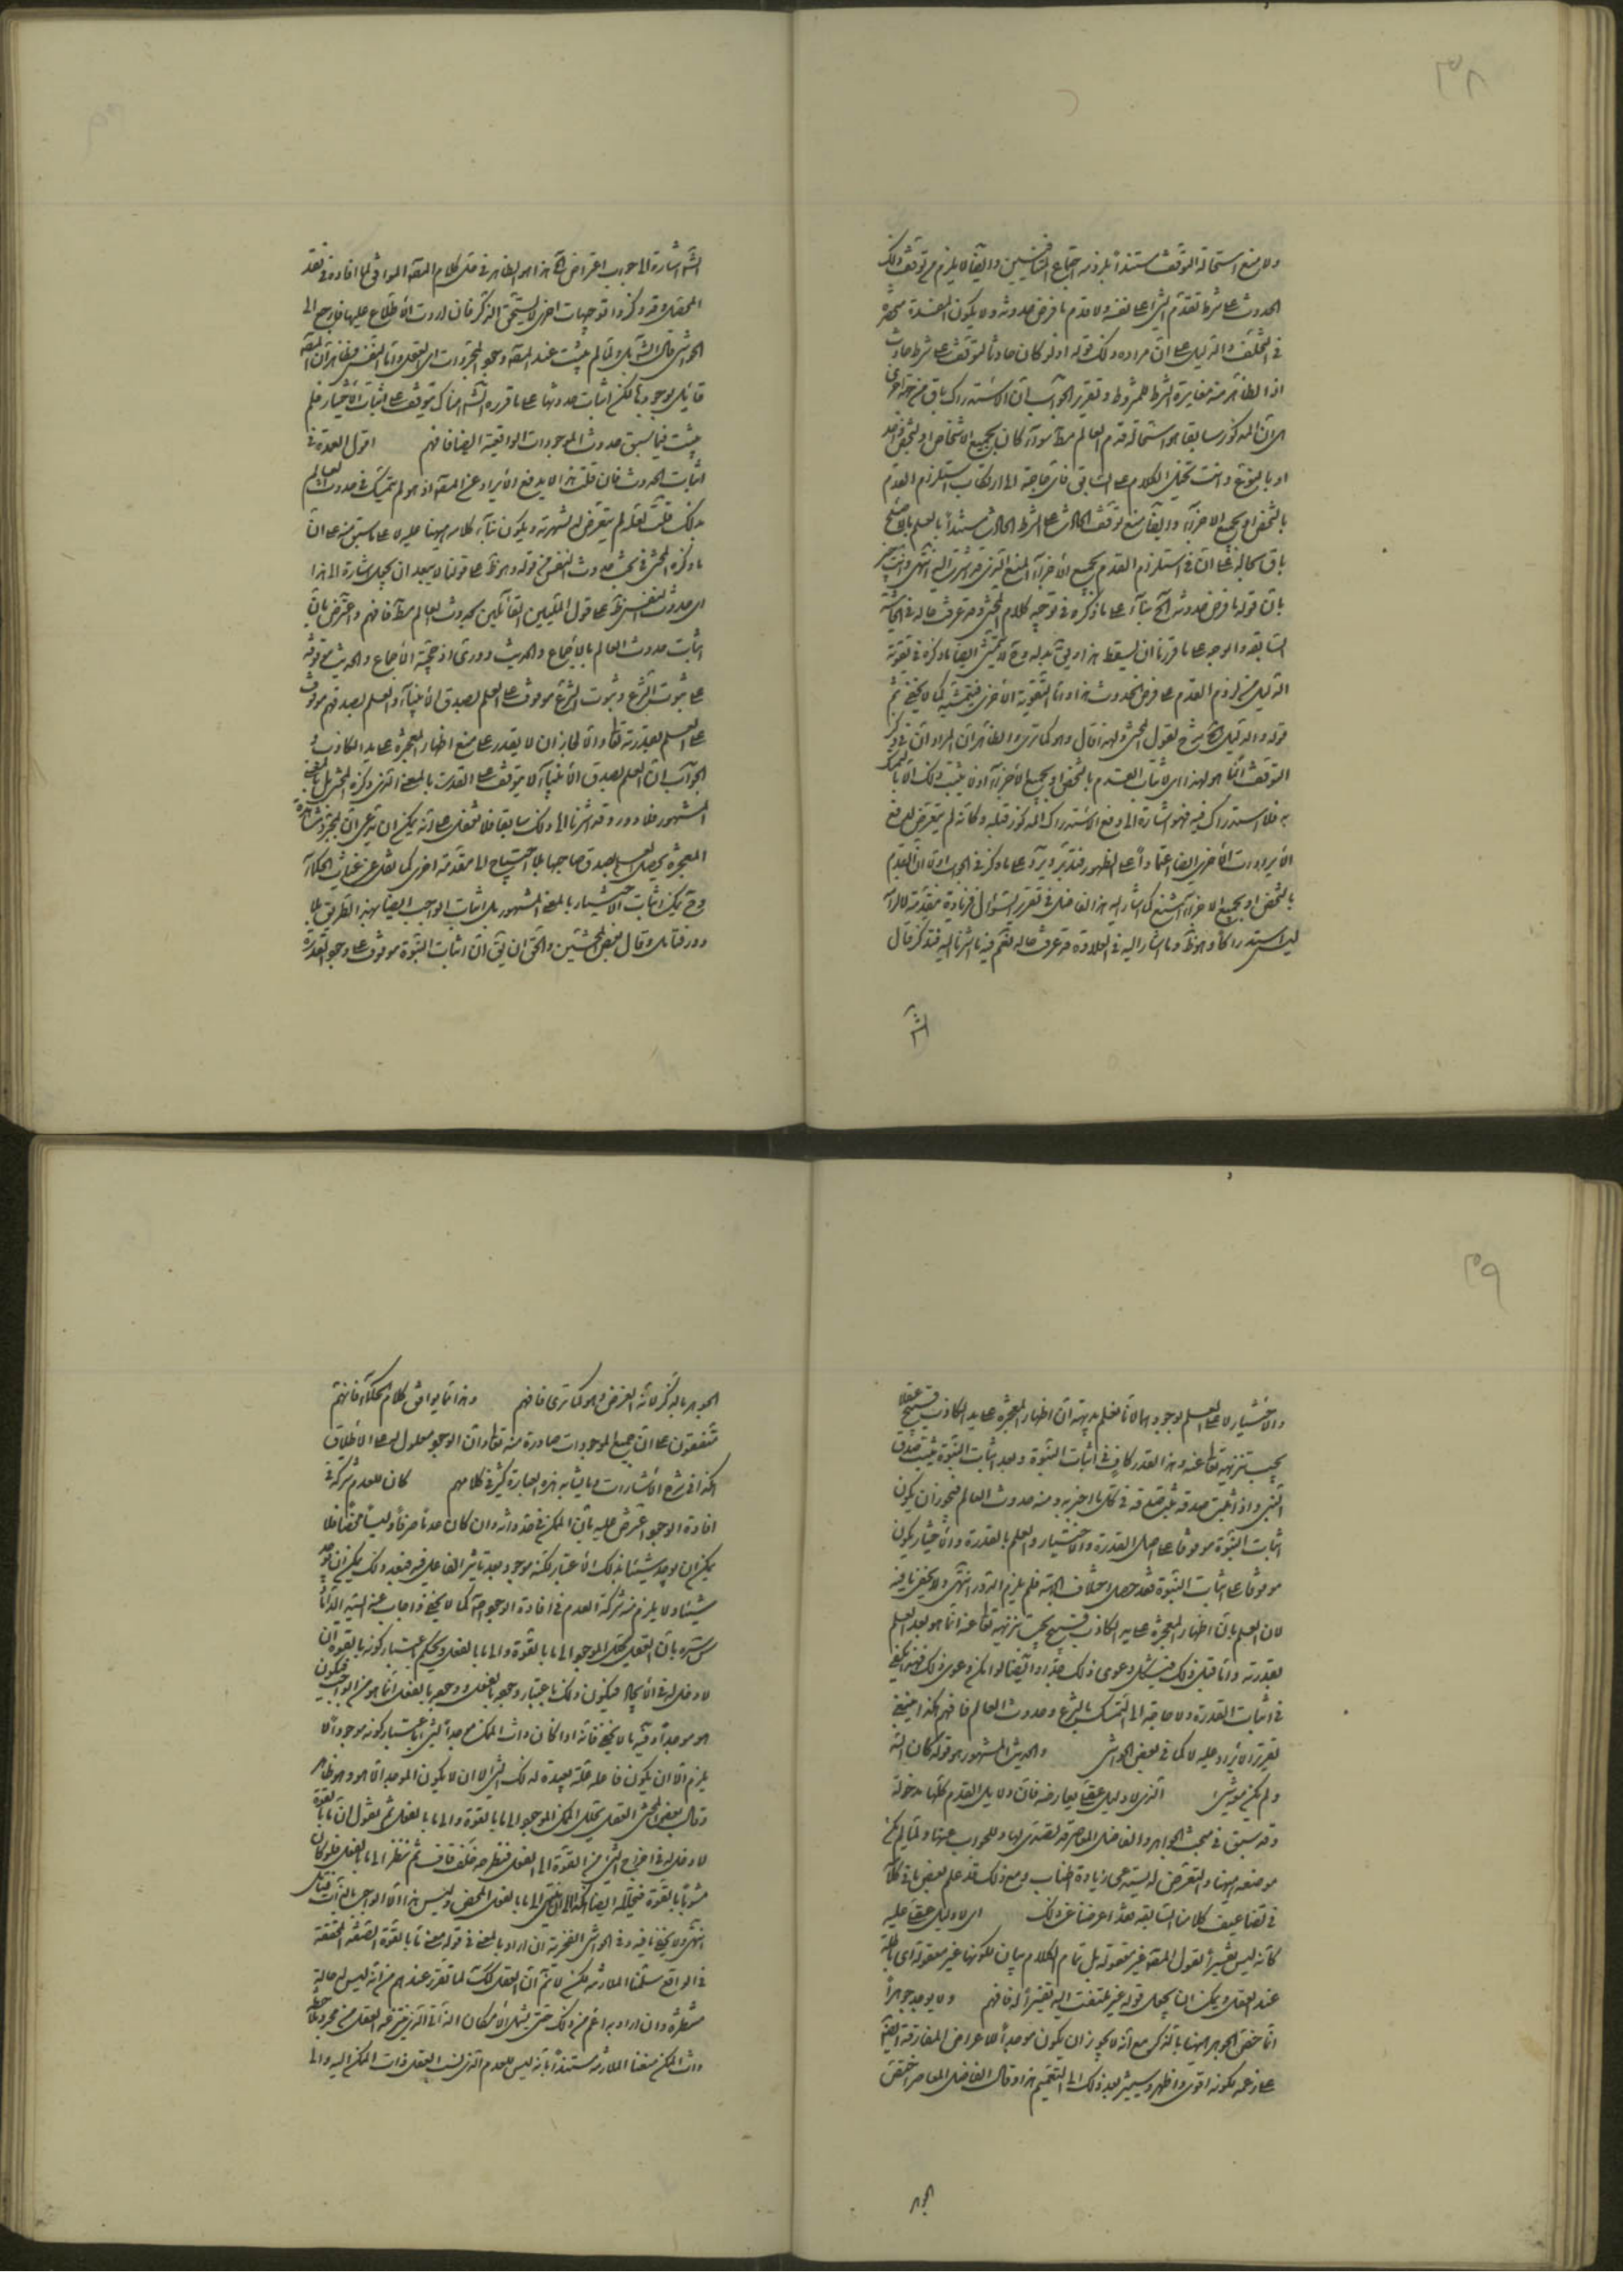 ٣٨
ولا منع استحالة التوقف مستنداً بلزوم اجتماع النقيضين وايضاً لا يلزم من توقف ذلك
الحدوث على شرط تقدم الشئ على نفسه ولا قدم ما فرض حدوثه ولا يكون المفسدة منحصرة
في التخلف والدليل على ان مراده ذلك قوله اذ لو كان حادثاً لتوقف على شرط حادث
اذ الظاهر منه مغايرة الشرط للمشروط وتقرير الجواب ان الاستدراك باق من جهة اخرى
اذ المذكور سابقا هو استحالة قدم العالم مط سواء كان بجميع الاشخاص او بشخص واحد
او بالنوع وانت تخيل الكلام على السابق فاى حاجة الى ارتكاب استلزام القدم
بالشخص او بجميع الاجزاء وايضا منع توقف الحادث على الشرط الحادث مستنداً بالعلم بالاصلح
باق بحاله على ان في استلزام القدم بجميع الاجزاء المنع الذى قد اشرت اليه انتهى وانت خبير
بان قوله ما فرض حدوثه الخ بناء على ما ذكره في توجيه كلام المحشى وقد عرفت ماله في الحاشية
السابقة والوجه على ما قررنا ان يسقط هذا ويق بدله وح لا يتمشى ايضا ما ذكره في تقوية
الدليل من لزوم القدم على فرض الحدوث هذا واما التقوية الاخرى فتمشيه كما لا يخفى ثم
قوله والدليل الخ شرح لقول المحشى ولهذا قال وهو كما ترى والظاهر ان المراد ان ذكر
التوقف انما هو لهذا اى لاثبات القدم بالشخص او بجميع الاجزاء اذ لا يثبت ذلك الا بالتمسك
به فلا استدراك فيه فهو اشارة الى دفع الاستدراك المذكور قبله وكانه لم يتعرض لدفع
الايرادات الاخرى ايضا اعتماداً على الظهور فتدبر ويرد على ما ذكر في الجواب ان القدم
بالشخص او بجميع الاجزاء شنع كما اشار اليه هذا الفاضل في تقرير السؤال فزيادة مقدمة لالزامه
ليس استدراكا وهو ظ وما اشار اليه في العلاوة قد عرفت ماله نعم فيه ما اشرنا اليه فتذكر قال
الش
الش اشارة الى جواب اعتراض الخ هذا هو الظاهر في حل كلام المصنف الموافق لما افاده في نقد
المحصل وقد ذكروا توجيهات اخر لا يستحق الذكر فان اردت الاطلاع عليها فارجع الى
الحواشى قال الش بل ولما لم يثبت عند المصنف وجود المجردات اى العقل واما النفس فظاهر ان المصنف
قائل بوجودها لكن اثبات حدوثها على ما قرره الش هناك يتوقف على اثبات الاختيار فلم
يثبت فيما سبق حدوث الموجودات الواقعية ايضا فافهم اقول العمدة في
اثبات الحدوث فان قلت هذا لا يدفع الايراد عن المصنف اذ هو لم يتمسك في حدوث العالم
بذلك قلت لعله لم يتعرض له لشهرته ويكون بناء كلامه ههنا عليه لا على ما سبق منه على ان
ما ذكره المحشى في بحث حدوث النفس من قوله وهو ظ على قولنا لا يبعد ان يجعل اشارة الى هذا
اى حدوث النفس ظ على قول المليين القائلين بحدوث العالم مط فافهم واعترض بان
اثبات حدوث العالم بالاجماع والحديث دورى اذ حجية الاجماع والحديث موقوفة
على ثبوت الشرع وثبوت الشرع موقوف على العلم بصدق الانبياء والعلم بصدقهم موقوف
على العلم بقدرته تعالى والا لجاز ان لا يقدر على منع اظهار المعجزة على يد الكاذب و
الجواب ان العلم بصدق الانبياء لا يتوقف على القدرة بالمعنى الذى ذكره المحشى بل بالمعنى
المشهور فلا دور وقد اشرنا الى ذلك سابقا فلا تغفل على انه يمكن ان يدعى ان بمجرد مشاهدة
المعجزة يحصل العلم بصدق صاحبها بلا احتياج الى مقدمة اخرى كما نقل عن غياث الحكماء
وح يمكن اثبات الاختيار بالمعنى المشهور بل اثبات الواجب ايضا بهذا الطريق بلا
دور فتامل وقال بعض المحشين والحق ان يق ان اثبات النبوة موقوف على وجود القدرة
٣٩
والاختيار لا على العلم بوجودهما لانا نعلم بديهة ان اظهار المعجزة على يد الكاذب قبيح عقلا
يجب تنزيهه تعالى عنه وهذا القدر كاف في اثبات النبوة وبعد اثبات النبوة يثبت صدق
النبى واذا ثبت صدقه يثبت صدقه في كل ما اخبر به ومنه حدوث العالم فيجوز ان يكون
اثبات النبوة موقوفا على اصل القدرة والاختيار والعلم بالقدرة والاختيار يكون
موقوفا على اثبات النبوة فقد حصل اختلاف الجهة فلم يلزم الدور انتهى ولا يخفى ما فيه
لان العلم بان اظهار المعجزة على يد الكاذب قبيح يجب تنزيهه تعالى عنه انما هو بعد العلم
بقدرته واما قبل ذلك فيشكل دعوى ذلك جدا وايضا لو امكن دعوى ذلك فهذا يكفى
في اثبات القدرة ولا حاجة الى التمسك بالشرع وحدوث العالم فافهم هكذا ينبغى
تقرير الايراد عليه لا كما في بعض الحواشى والحديث المشهور هو قوله كان الله
ولم يكن معه شئ الذى لا دليل عقلى يعارضه فان دلايل القدم كلها مدخولة
وقد سبق في مبحث الجواهر والفاضل المعاصر قد تصدى لها وللجواب عنها ولما لم يكن
موضعه ههنا والتعرض له يستدعى زيادة اطناب ومع ذلك قد علم بعض ما في كلامه
في تضاعيف كلامنا السابقة فقد اعرضنا عن ذلك اى لا دليل عقلى عليه
كانه ليس تفسيراً لقول المصنف غير معقولة بل تمام الكلام بيان لكونها غير معقولة اى باطلة
عند العقل ويمكن ان يجعل قوله غير ملتفت اليه تفسيراً له فافهم ولا يوجد جوهراً
انما خص الجوهر ههنا بالذكر مع انه لا يجوز ان يكون موجداً للاعراض المفارقة ايضا
على زعمه لكونه اقوى واظهر وسيشير بعد ذلك الى التعميم هذا وقال الفاضل المعاصر اختص
الجوهر
الجوهر بالذكر لانه الغرض وهو كما ترى فافهم وهذا انما يوافق كلام الحكماء فانهم
متفقون على ان جميع الموجودات صادرة منه تعالى وان الوجود معلول له على الاطلاق
هكذا في شرح الاشارات وما يشابه هذه العبارة كثير في كلامهم كان للعدم شركة في
افادة الوجود اعترض عليه بان الممكن في حد ذاته وان كان عدما صرفا وليسا محضا فلا
يمكن ان يوجد شيئا بذلك الاعتبار لكنه موجود بعد تاثير الفاعل فيه فبعد ذلك يمكن ان يوجد
شيئا ولا يلزم منه شركة العدم في افادة الوجود اصلا كما لا يخفى واجاب عنه السيد الداماد
قدس سره بان العقل يحلل الموجود الى ما بالقوة والى ما بالفعل ويحكم باعتبار كونه بالقوة ان
لا دخل له في الايجاد فيكون ذلك باعتبار وجوده بالفعل ووجوده بالفعل انما هو من الواجب فيكون
هو موجداً وفيه ما لا يخفى فانه اذا كان ذات الممكن موجداً لشئ باعتبار كونه موجوداً لا
يلزم الا ان يكون فاعله علة بعيدة لذلك الشئ لا ان لا يكون الموجد الا هو وهو ظاهر
وقال بعض المحشين العقل يحلل الممكن الموجود الى ما بالقوة والى ما بالفعل ثم نقول ان ما بالقوة
لا دخل له في اخراج الشئ من القوة الى الفعل فنطرحه خلف قاف ثم ننظر الى ما بالفعل فلو كان
مشوبا بالقوة فنحلله ايضا هكذا الى ان ينتهى الى ما بالفعل المحض وليس هذا الا الواجب بالذات فتامل
انتهى ولا يخفى ما فيه وفي الحواشى الفخرية ان اراد بالمعنى في قوله معنى ما بالقوة الصفة المحققة
في الواقع سلمنا الملازمة لكن لا نم ان العقل كذلك لما تقرر عندهم من انه ليس له حالة
منتظرة وان اراد به اعم من ذلك حتى يشمل الامكان الذاتى الذى ينتزعه العقل من مجرد ملاحظة
ذات الممكن منعنا الملازمة مستنداً بانه ليس للعدم الذى نسب العقل ذات الممكن اليه والى